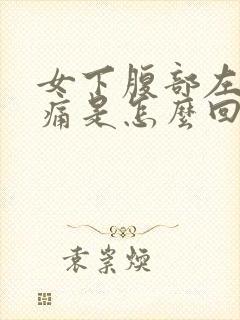 女下腹部左
痛是怎麼回
袁崇煥